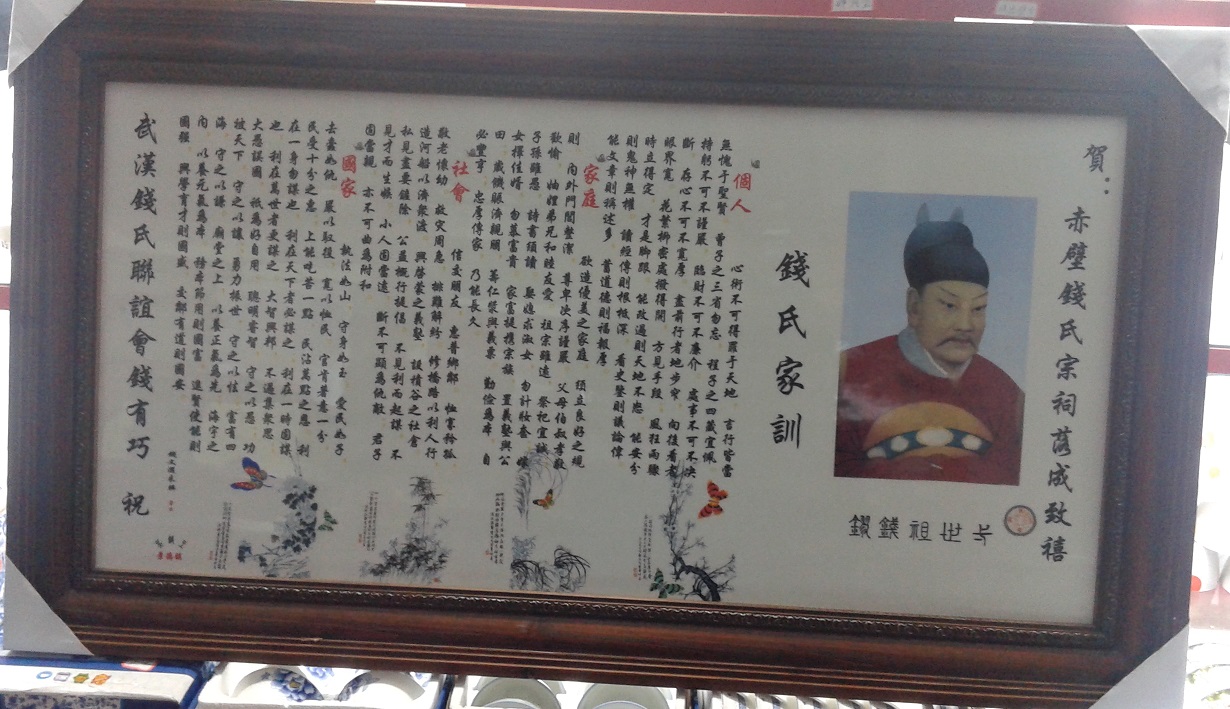 賀：
赤壁錢氏宗祠落成致禧
錢氏家訓
個人
心術不可得罪于天地 言行皆當
無愧于聖賢 曾子之三省勿忘 程子之四箴宜佩
持躬不可不謹嚴 臨財不可不廉介 處事不可不決
斷 存心不可不寬厚 盡前行者地步窄 向後看者
眼界寬 花繁柳密處撥得開 方見手段 風狂雨驟
時立得定 才是脚跟 能改過則天地不怒 能安分
則鬼神無權 讀經傳則根柢深 看史鑒則議論偉
能文章則稱述多 蓄道德則福報厚
家庭
欲造優美之家庭 須立良好之規
則 內外門閭整潔 尊卑次序謹嚴 父母伯叔孝敬
歡愉 妯娌弟兄和睦友愛 祖宗雖遠 祭祀宜誠
子孫雖愚 詩書須讀 娶媳求淑女 勿計妝奩 嫁
女擇佳婿 勿慕富貴 家富提携宗族 置義塾與公
田 歲饑賑濟親朋 籌仁漿與義粟 勤儉為本 自
必豐亨 忠厚傳家 乃能長久
社會
信交朋友 惠普鄉鄰 恤寡矜孤
敬老懷幼 救災周急 排難解紛 修橋路以利人行
造河船以濟衆渡 興啓蒙之義塾 設積谷之社會
私見盡要鏟除 公益概行提倡 不見利而起謀 不
見才而生嫉 小人固當遠 斷不可顯為仇敵 君子
固當親 亦不可曲為附和
國家
執法如山 守身如玉 愛民如子
去蠹如仇 嚴以馭役 寬以恤民 官肯著意一分
民受十分之惠 上能吃苦一點 民沾萬點之恩 利
在一身勿謀也 利在天下者必謀之 利在一時固謀
也 利在萬世者更謀之 大智興邦 不過集衆思
大愚誤國 祇為好自用 聰明睿智 守之以愚 功
被天下 守之以讓 勇力振世 守之以怯 富有四
海 守之以謙 廟堂之上 以養正氣為先 海宇之
內 以養元氣為本 務本節用則國富 進賢使能則
國强 興學育才則國盛 交鄰有道則國安
武漢錢氏聯誼會錢有巧 祝